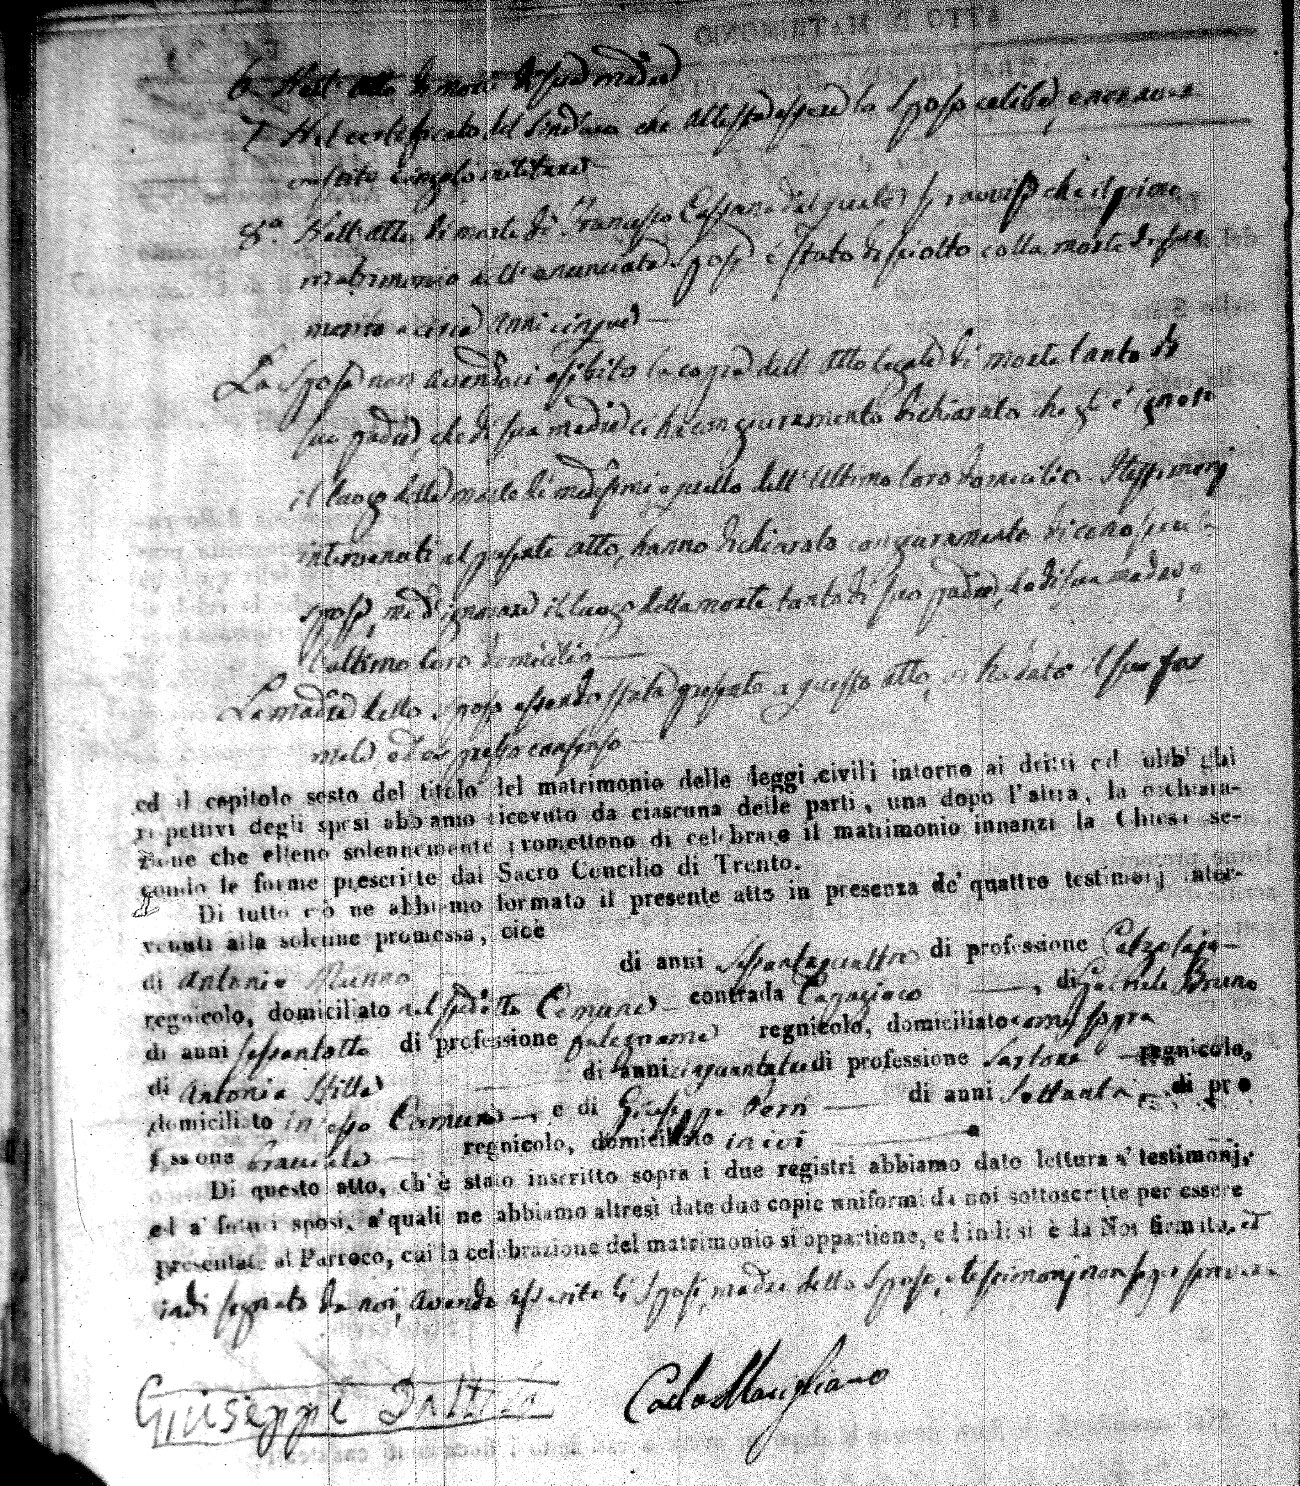 6. Nell'atto di morte di sua madre
7. Nel certificato del Sindaco che attesta essere lo Sposo celibe, e non
militare
8.a Nell'atto di morte di Francesco Cassano dal quale si ravvisa che il primo
matrimonio dell'enunciata Sposa è stato disciolto colla morte di suo
marito a circa anni cinque
La Sposa non avendoci esibito la copia dell'atto legale di morte tanto di
suo padre, che di sua madre ci ha con giuramento dichiarato che l'è ignoto
il luogo della morte di medesimi e quello dell'ultimo loro domicilio. I testimonj
intervenuti al presente atto, hanno dichiarato con giuramento di conoscere la
sposa, ma d'ignorare il luogo della morte tanto di suo padre, che di sua madre, e
l'ultimo loro domicilio
La madre dello sposo essendo stata presente a questo atto, vi ha dato il suo for
male ed espresso consenso
ed il capitolo sesto del titolo del matrimonio delle leggi civili intorno ai dritti ed obblighi
rispettivi degli sposi abbiamo ricevuto da ciascuna delle parti, una dopo l'altra, la dichiara-
zione che elleno solennemente promettono di celebrare il matrimonio innanzi la Chiesa se-
condo le forme prescritte dal Sacro Concilio di Trento.
Di tutto ciò ne abbiamo formato il presente atto in presenza de' quattro testimonj inter-
venuti alla solenne promessa, cioè
di Antonio Munno di anni sessantaquattro di professione Calzolajo
regnicolo, domiciliato nel sudetto Comune contrada , di Gabriele Bruno
di anni sessantotto di professione falegname regnicolo, domiciliato come sopra
di Antonio Stilla di anni cinquantatre di professione Sartore regnicolo,
domiciliato in esso Comune, e di Giuseppe Verri di anni settanta di pro
fessione Bracciale regnicolo, domiciliato in ivi
Di questo atto, ch'è stato inscritto sopra i due registri abbiamo dato lettura a' testimonj,
ed a' futuri sposi, a' quali ne abbiamo altresì date due copie uniformi da noi sottoscritte per essere
presentate al Parroco, cui la celebrazione del matrimonio si appartiene, ed indi si è da Noi firmato, et
indi segnato da noi, avendo asserito li Sposi, madre dello Sposo, e testimonj non saper scrivere
Giuseppe
Carlo Marigliano